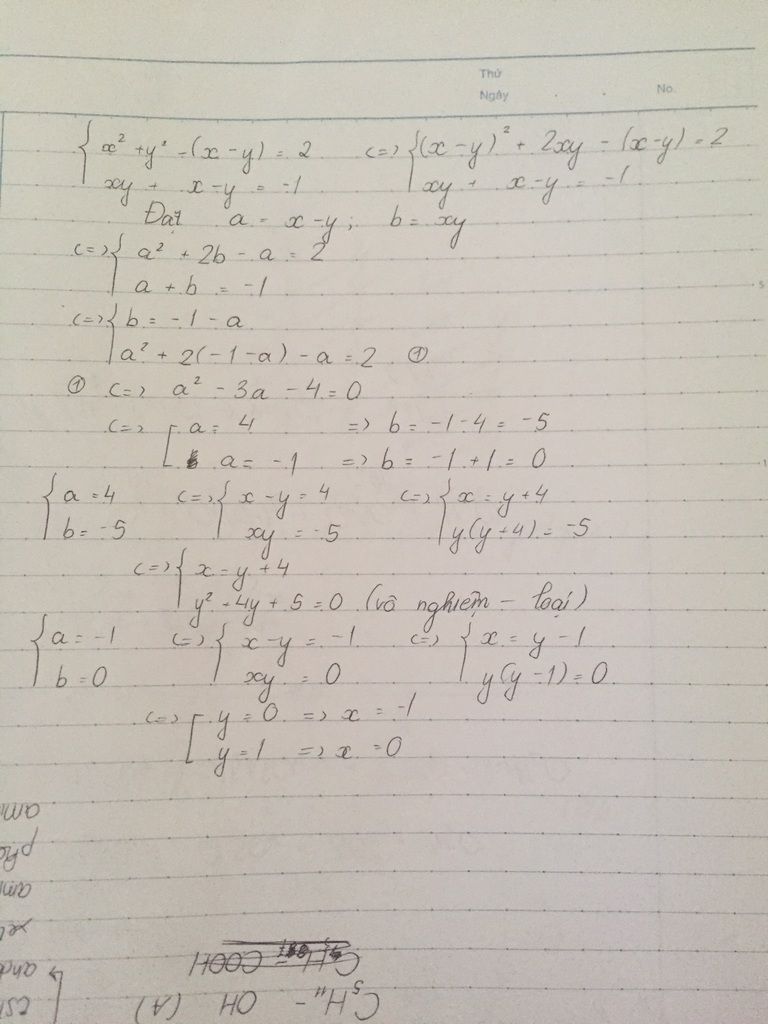 Thứ
Ngày . . No.
{ x² + y² - (x - y) = 2 <=> { (x - y)² + 2xy - (x - y) = 2
xy + x - y = -1 xy + x - y = -1
Đặt a = x - y; b = xy
<=> { a² + 2b - a = 2
a + b = -1
<=> { b = -1 - a
a² + 2(-1 - a) - a = 2 ①
① <=> a² - 3a - 4 = 0
<=> [ a = 4 => b = -1 - 4 = -5
a = -1 => b = -1 + 1 = 0
{ a = 4 <=> { x - y = 4 <=> { x = y + 4
b = -5 xy = -5 y(y + 4) = -5
<=> { x = y + 4
y² + 4y + 5 = 0 (vô nghiệm - loại)
{ a = -1 <=> { x - y = -1 <=> { x = y - 1
b = 0 xy = 0 y(y - 1) = 0
<=> [ y = 0 => x = -1
y = 1 => x = 0
C₅H₁₁ - OH (A)